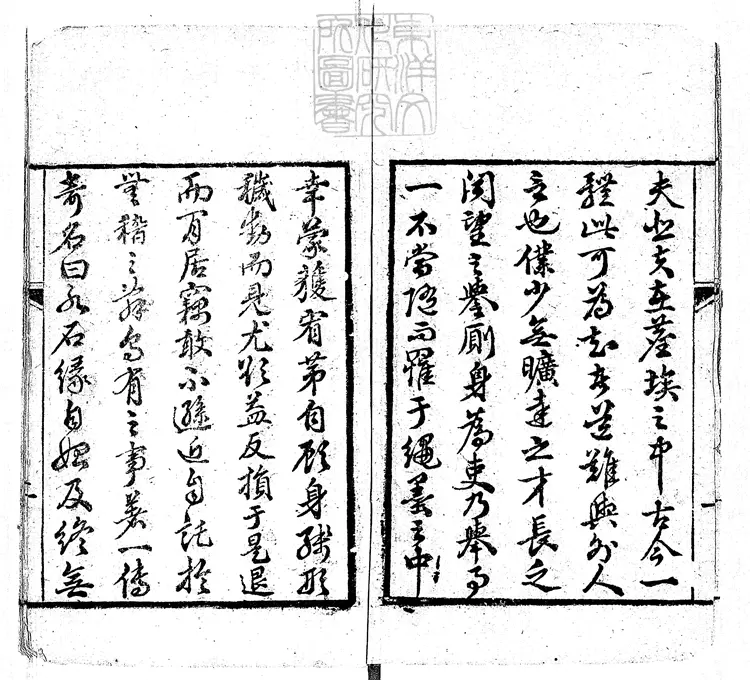 東洋文
化研究
所圖書
夫在塵埃之中古今一
體此可為知者道難與外人
言也僕少無曠達之才長乏
聞望之譽廁身為吏乃舉事
一不當隨而罹于繩墨之中
幸蒙護宥第自顧身殘形
穢動而見尤欲益反損于是退
而閒居竊敢不遜近自託於
無稽之辭烏有之事著一傳
奇名曰水石緣自始及終無